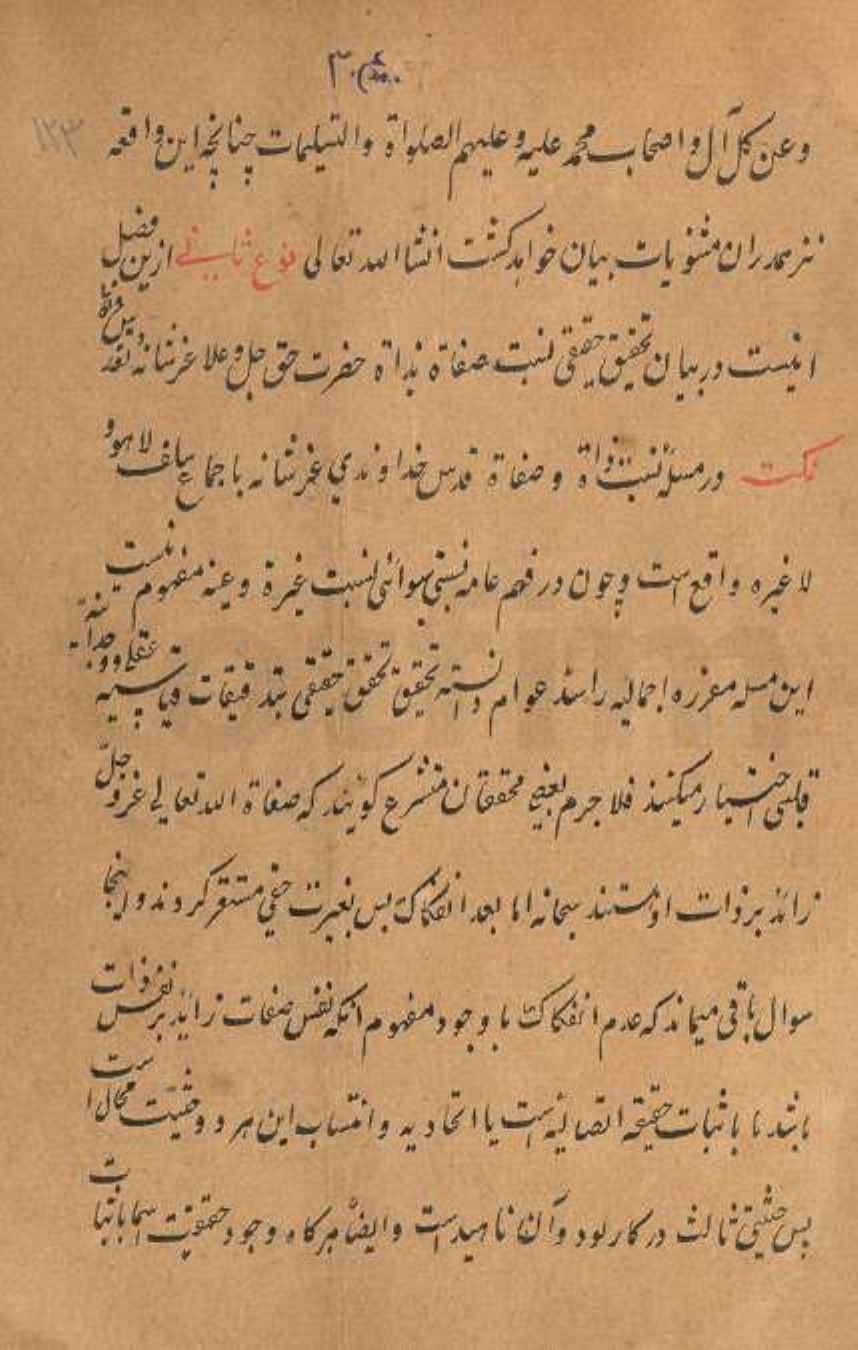 وعن کل آل و اصحاب محمد علیه و علیهم الصلواة والتسلیمات چنانچه این واقعه
نیز همدران مثنویات بیان خواهد گشت انشا الله تعالی نوع ثانی ازین فصل
اینست در بیان تحقیق حقیقی نسبت صفاة بذاة حضرت حق جل و علا عز شانه
نکت در مسئله نسبت ذواة و صفاة قدس خداوندی عز شانه باجماع سلف لا هو و
لا غیره واقع است و چون در فهم عامه نسبتی سوائی نسبت غیرة و عینه مفهوم نیست
این مسله مقرره اجمالیه را سند عوام دانسته تحقیق تحقق حقیقی بتدقیقات قیاسیه
اختیار میکنند فلا جرم بعضی محققان متشرع گویند که صفاة الله تعالی عز و جل
زائد بر ذات او هستند سبحانه اما بعد انفکاک پس بغیرت خفی مستقر کردند و اینجا
سوال باقی میماند که عدم انفکاک با وجود مفهوم آنکه نفس صفات زائد بر نفس ذات
باشد یا باثبات حقیقه اتصالیه است یا اتحادیه و انتساب این هر دو حیثیت محال است
پس حیثیتی ثالث در کار بود و آن ناپید است وایضا هر گاه وجود حقیقت اسما باثبات